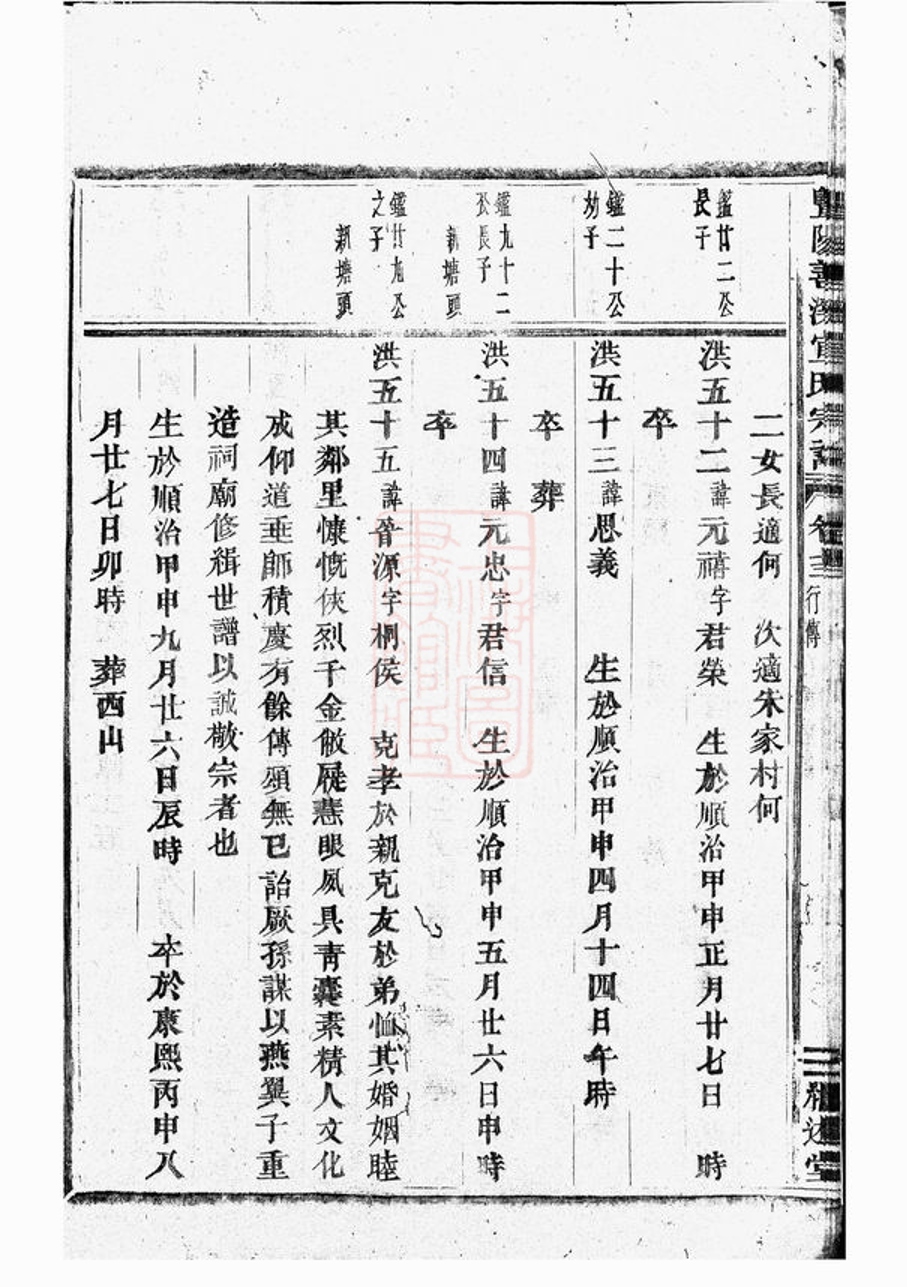 暨陽善溪宣氏宗譜 卷之三 行傳
二女長適何 次適朱家村何
鑑廿二公
長子
洪五十二諱元禧字君榮 生於順治甲申正月廿七日 時
卒
鑑二十公
幼子
洪五十三諱思義 生於順治甲申四月十四日午時
卒 葬
鑑九十二
公長子
新塘頭
洪五十四諱元忠字君信 生於順治甲申五月廿六日申時
卒
鑑廿九公
之子
新塘頭
洪五十五諱晉源字桐侯 克孝於親克友於弟恤其婚姻睦
其鄰里慷慨俠烈千金敝屣慧眼夙具青囊素精人文化
成仰道垂師積慶有餘傳頌無已詒厥孫謀以燕翼子重
造祠廟修緝世譜以誠敬宗者也
生於順治甲申九月廿六日辰時 卒於康熙丙申八
月廿七日卯時 葬西山